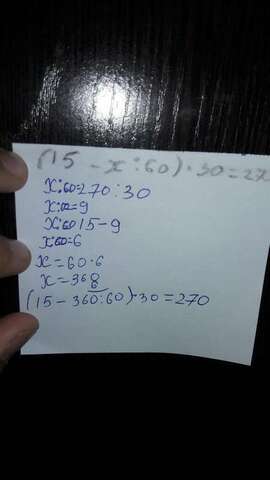 (15 - x:60)·30=270
x:60=270:30
x:60=9
x:60 15-9
x:60=6
x=60·6
x=360
(15-360:60)·30=270